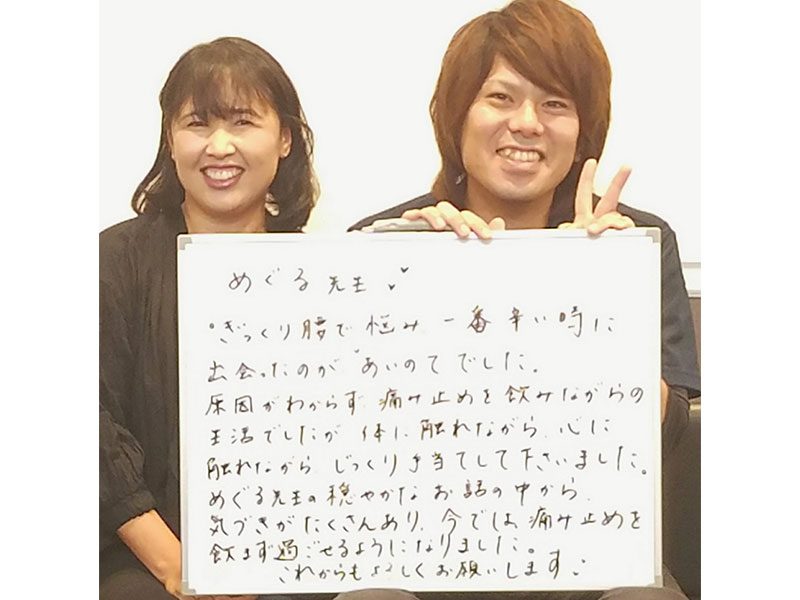 めぐる先生
・ぎっくり腰で悩み 一番辛い時に
出会ったのが"あいのて"でした。
原因がわからず 痛み止めを飲みながらの
生活でしたが 体に触れながら、心に
触れながら、じっくり手当てして下さいました。
めぐる先生の穏やかな お話の中から、
気づきがたくさんあり、今では 痛み止めを
飲まず過ごせるようになりました。
これからもよろしくお願いします